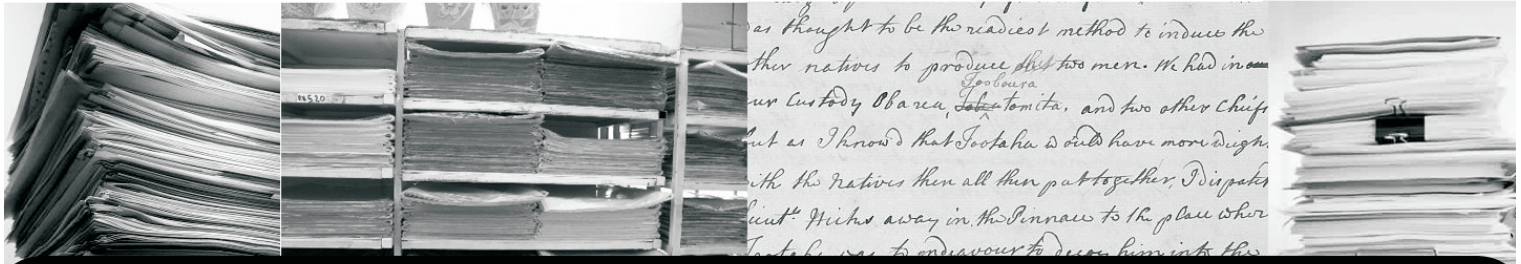 as thought to be the readiest method to induce the
ther natives to produce two men. We had in
Tooboura
ur Custody Obarea, tomita, and two other Chiefs
ut as I know'd that Tootaha would have more weigh
ith the Natives then all thin put together, I dispatc
ieutt. Hicks away in the Pinnace to the place wher
Tootaha was to endeavour to decoy him into the